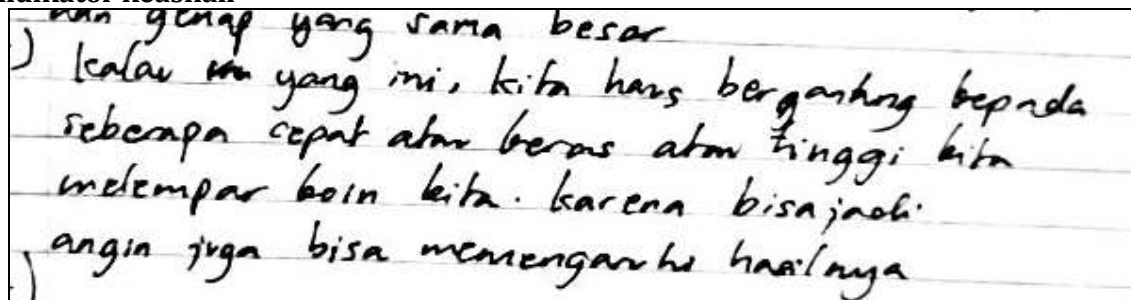 genap yang sama besar
) kalau yang ini, kita harus bergantung kepada
seberapa cepat atau keras atau tinggi kita
melempar koin kita. karena bisa jadi
angin juga bisa memengaruhi hasilnya
)